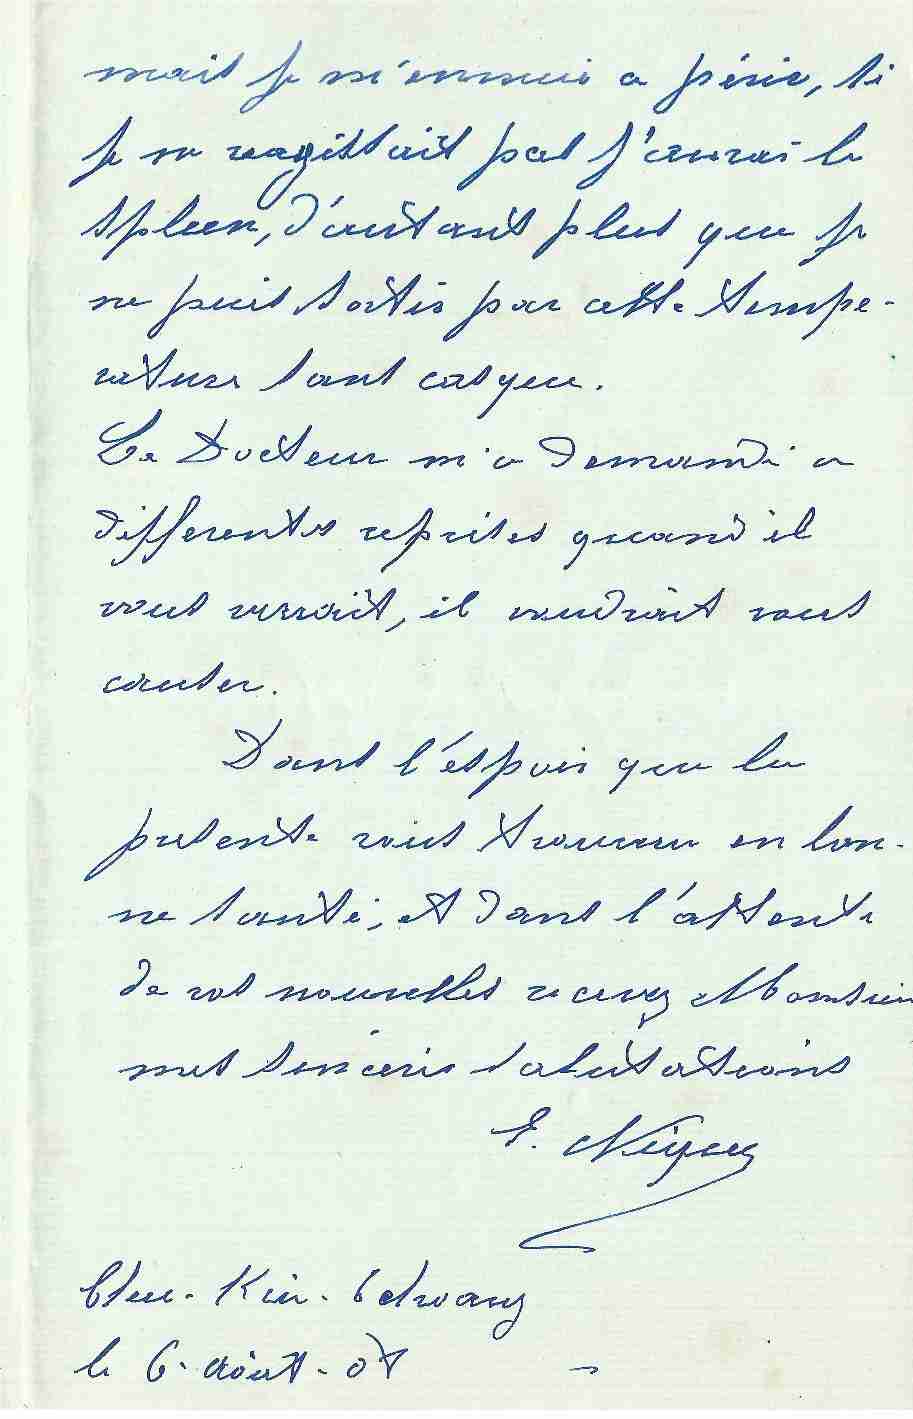 mais je m'ennuie a périr, si
je ne reagissait pas j'aurai le
spleen, d'autant plus que je
ne puis sortir par cette tempe-
rature sans casque.
Le Docteur m'a demandé a
differentes reprises quand il
vous verrait, il voudrait vous
causer.
Dans l'espoir que la
presente vous trouvera en bon-
ne santé, et dans l'attente
de vos nouvelles recevez Monsieur
mes sinceres salutations
E.
le 6 Août - 07